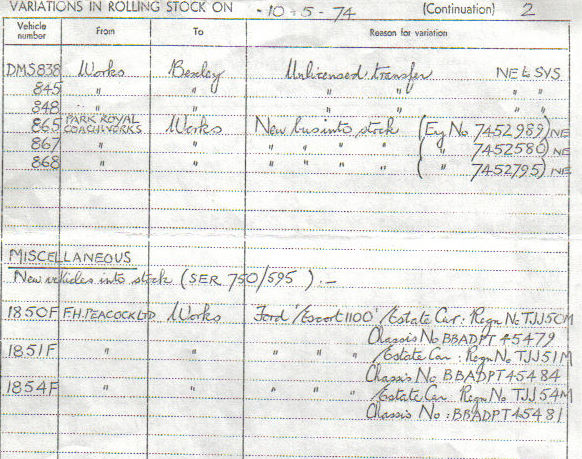 VARIATIONS IN ROLLING STOCK ON - 10 - 5 - 74 (Continuation) 2
Vehicle number From To Reason for variation
DMS838 Works Bexley Unlicensed transfer NE & SYS
845 " " " " " "
848 " " " " " "
865 PARK ROYAL COACHWORKS Works New bus into stock (Eng No 7452989) NE
867 " " " " " " ( " 7452580) NE
868 " " " " " " ( " 7452795) NE
MISCELLANEOUS
New vehicles into stock (SER 750/595) :-
1850F F.H. PEACOCK LTD Works Ford 'Escort 1100' /Estate Car : Regn No TJJ50M
Chassis No BBADPT 45479
1851F " " " " " /Estate Car : Regn No TJJ51M
Chassis No BBADPT 45484
1854F " " " " " /Estate Car Regn No TJJ 54M
Chassis No : BBADPT 45481